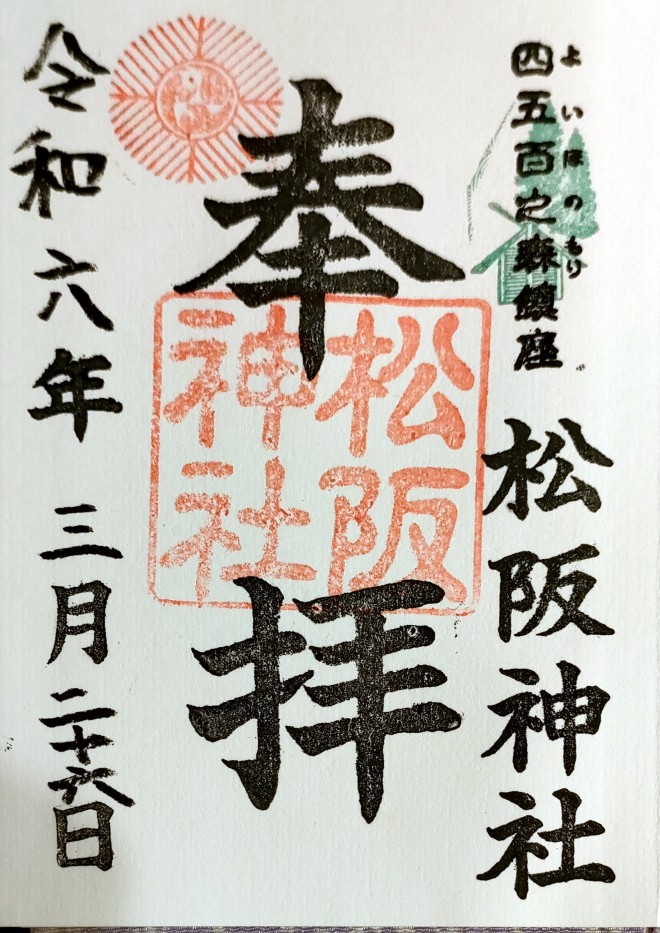 四五百之森鎮座
よいほのもり
松阪神社
奉拝
松阪
神社
令和六年三月二十六日